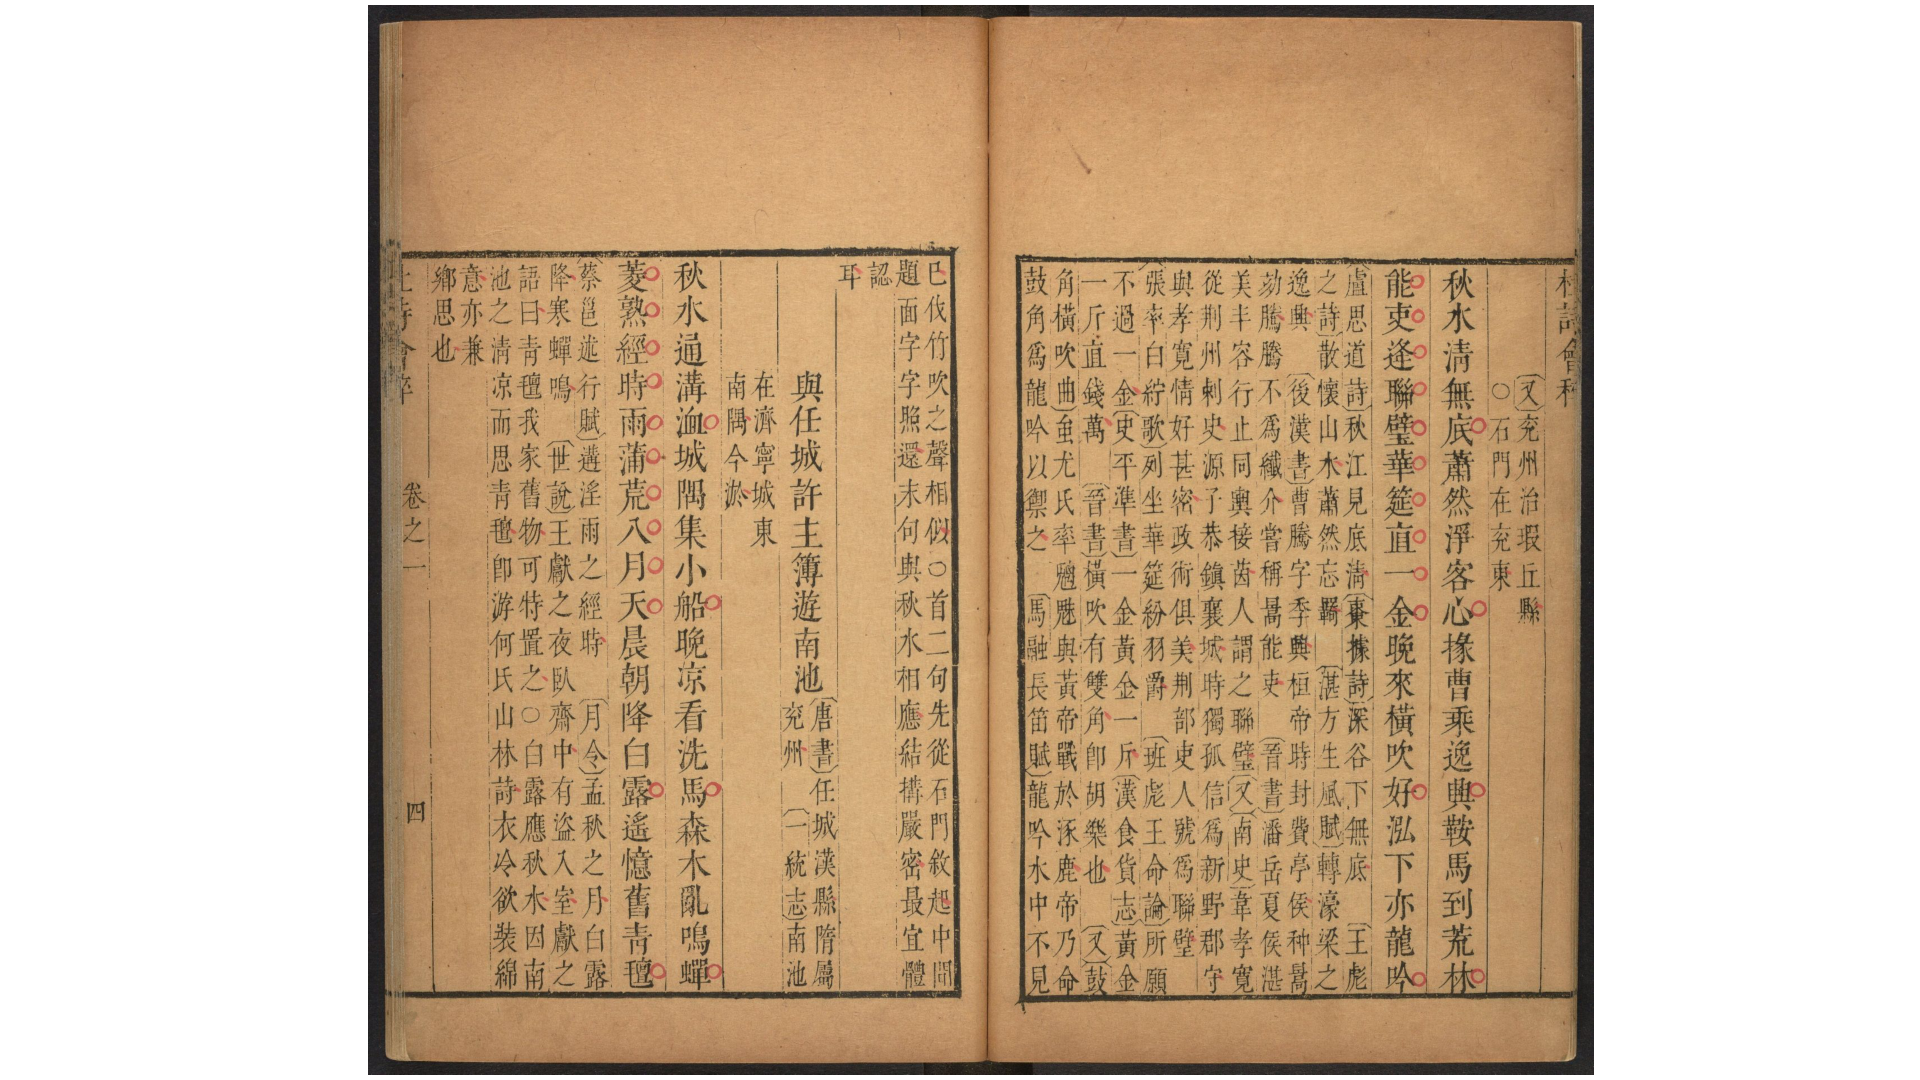 杜詩會稡
〔又〕兗州治瑕丘縣
○石門在兗東
秋水清無底蕭然淨客心掾曹乘逸興鞍馬到荒林
能吏逢聯璧華筵直一金晚來橫吹好泓下亦龍吟
盧思道詩〔秋江見底清〔棗據詩〕深谷下無底　〔王彪
之詩〕散懷山水蕭然忘羈　〔湛方生風賦〕轉濠梁之
逸興　〔後漢書〕曹騰字季興桓帝時封費亭侯种暠
劾騰騰不爲纖介嘗稱暠能吏　〔晉書〕潘岳夏侯湛
美丰容行止同輿接茵人謂之聯璧〔又〕〔南史〕韋孝寬
從荆州刺史源子恭鎮襄城時獨孤信爲新野郡守
與孝寬情好甚密政術俱美荆部吏人號爲聯璧
〔張率白紵歌〕列坐華筵紛羽爵　〔班彪王命論〕所願
不過一金〔史平準書〕一金黃金一斤〔漢食貨志〕黃金
一斤直錢萬　〔晉書〕橫吹有雙角卽胡樂也　〔又〕〔鼓
角橫吹曲〕蚩尤氏率魑魅與黃帝戰於涿鹿帝乃命
鼓角爲龍吟以禦之　〔馬融長笛賦〕龍吟水中不見
已伐竹吹之聲相似○首二句先從石門敘起中間
題面字字照還末句與秋水相應結搆嚴密最宜體
認
耳
與任城許主簿遊南池
〔唐書〕任城漢縣隋屬
兗州　〔一統志〕南池
在濟寧城東
南隅今淤
秋水通溝洫城隅集小船晚凉看洗馬森木亂鳴蟬
菱熟經時雨蒲荒八月天晨朝降白露遙憶舊青氊
蔡邕述行賦〕遘淫雨之經時　〔月令〕孟秋之月白露
降寒蟬鳴　〔世說〕王獻之夜臥齋中有盜入室獻之
語曰青氊我家舊物可特置之○白露應秋水因南
池之清凉而思青氊卽游何氏山林詩衣冷欲裝綿
意亦兼
鄉思也
杜詩會稡　卷之一　四